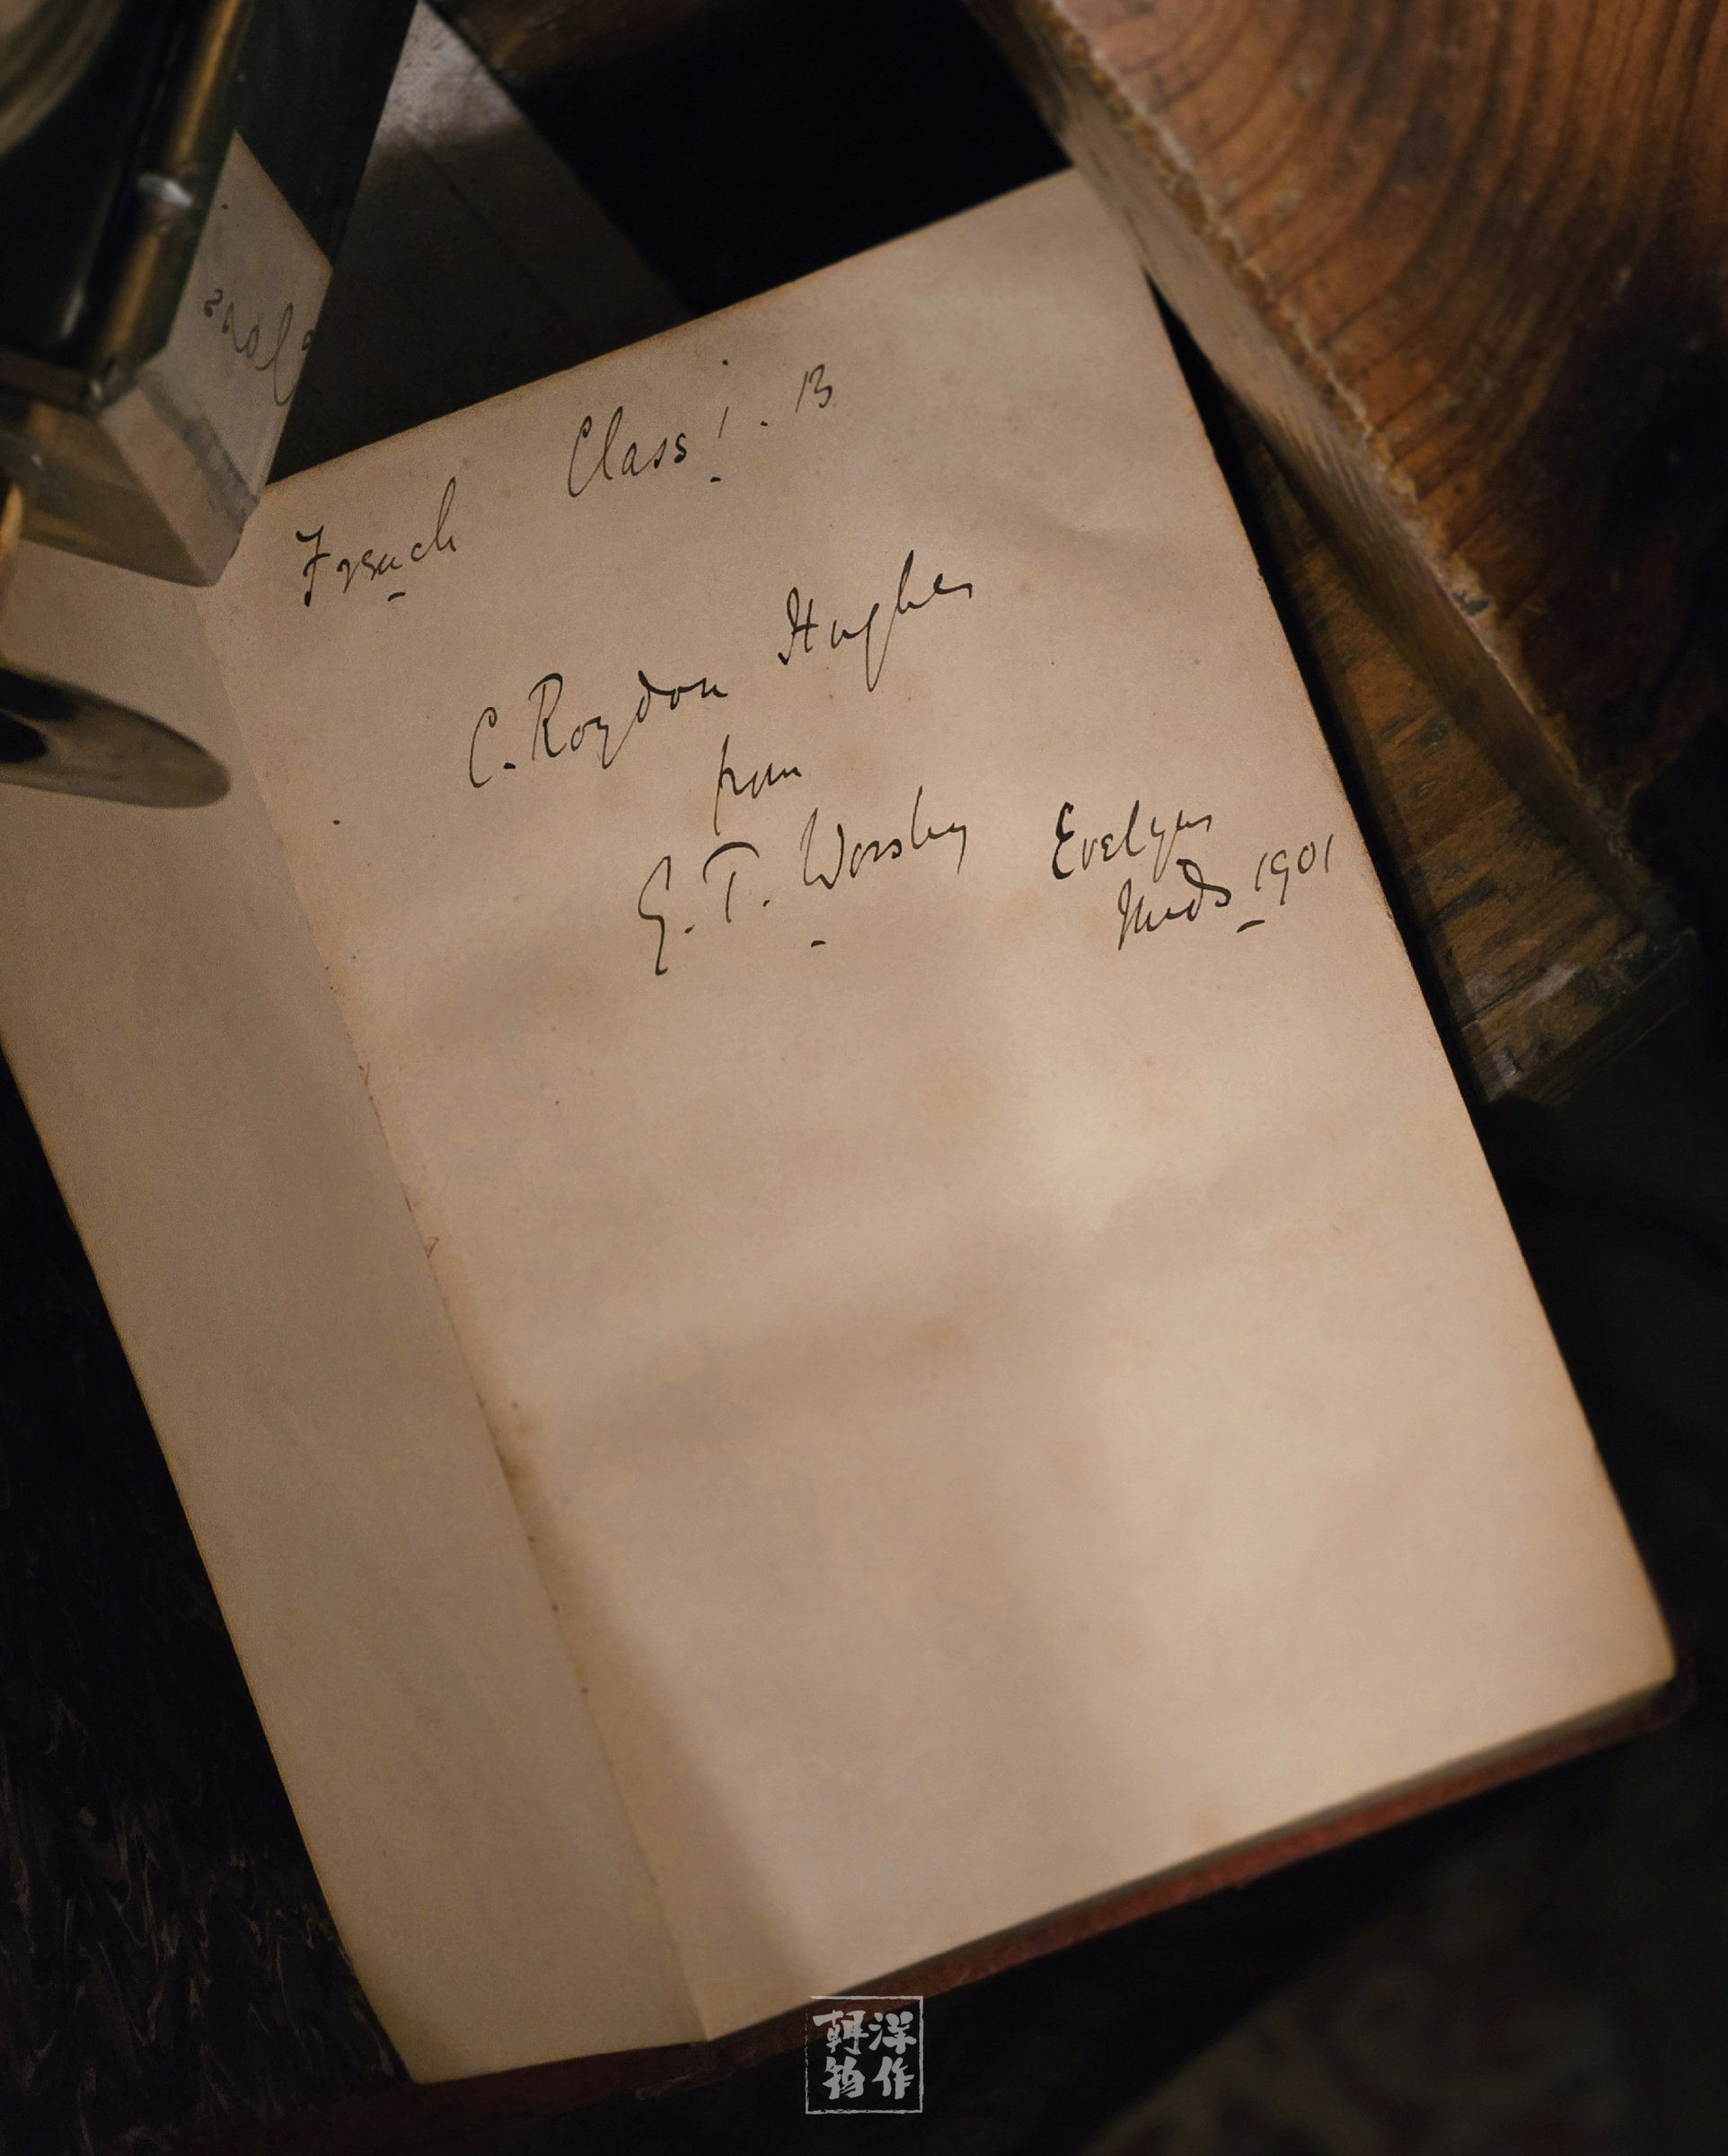 French Class i. B
C. Roydon Hughes
from
G. T. Worsley Evelyns
Mids 1901